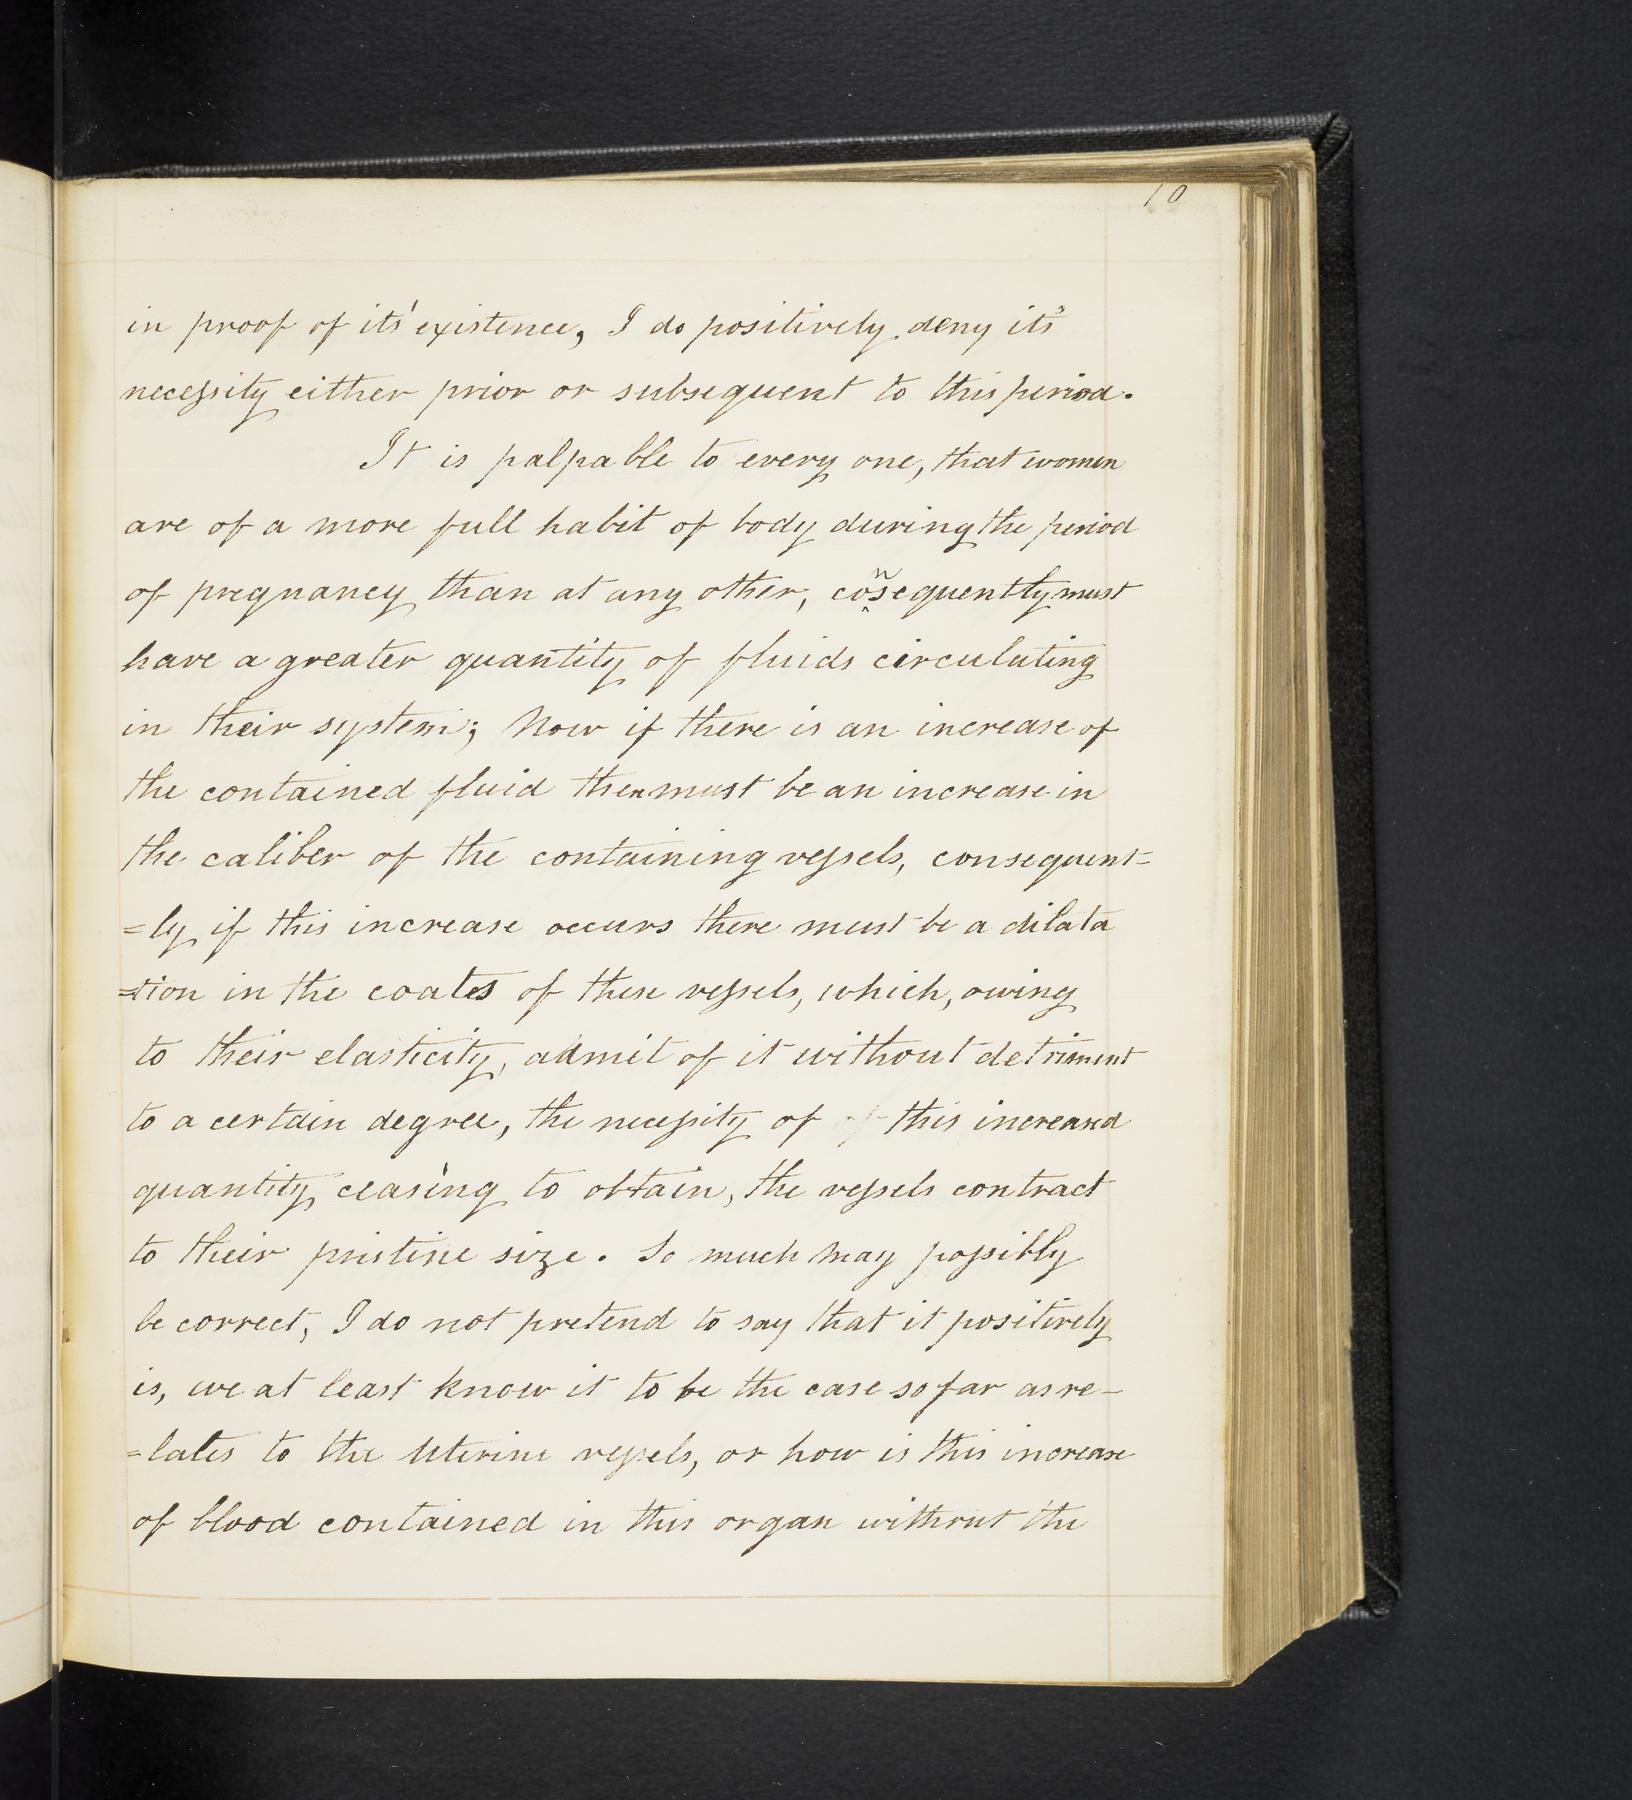 10
in proof of its' existence, I do positively deny it's
necessity either prior or subsequent to this period.
It is palpable to every one, that women
are of a more full habit of body during the period
of pregnancy than at any other, consequently must
have a greater quantity of fluids circulating
in their system; Now if there is an increase of
the contained fluid then must be an increase in
the caliber of the containing vessels, consequent-
=ly if this increase occurs there must be a dilata
=tion in the coates of these vessels, which, owing
to their elasticity, admit of it without detriment
to a certain degree, the necessity of this increased
quantity ceasing to obtain, the vessels contract
to their pristine size. So much may possibly
be correct, I do not pretend to say that it positively
is, we at least know it to be the case so far as re-
=lates to the Uterine vessels, or how is this increase
of blood contained in this organ without the